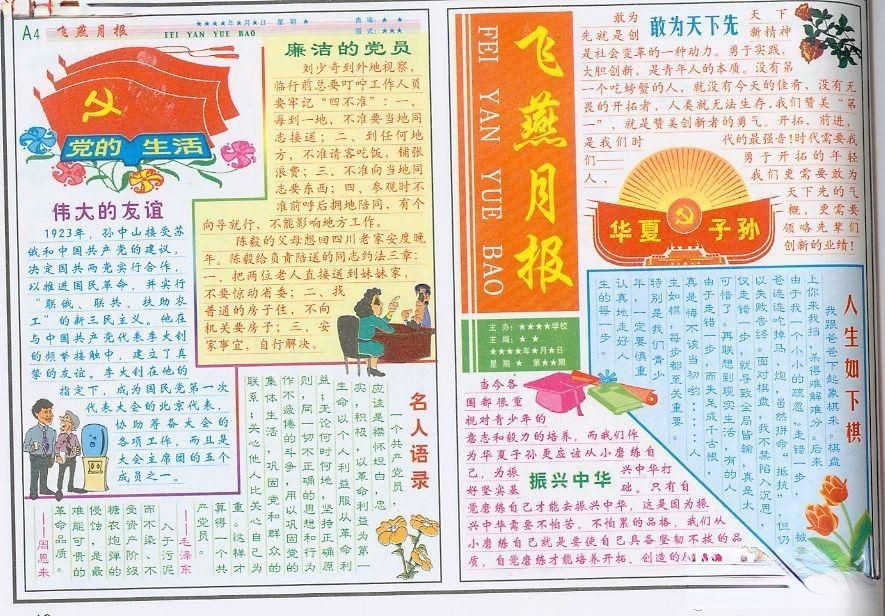 A4
飞燕月报
FEI YAN YUE BAO
★★★★年★月★日 星期★
责编：★★
版式：★★★
党的生活
廉洁的党员
刘少奇到外地视察，
临行前总要叮咛工作人员
要牢记“四不准”：一、
每到一地，不准要当地同
志接送；二、到任何地
方，不准请客吃饭，铺张
浪费；三、不准向当地同
志要东西；四、参观时不
准前呼后拥地陪同，有个
向导就行，不能影响地方工作。
陈毅的父母想回四川老家安度晚
年。陈毅给负责陪送的同志约法三章：
一、把两位老人直接送到妹妹家，
不要惊动省委；二、找
普通的房子住，不向
机关要房子；三、安
家事宜，自行解决。
伟大的友谊
1923年，孙中山接受苏
俄和中国共产党的建议，
决定国共两党实行合作，
以推进国民革命，并实行
“联俄、联共、扶助农
工”的新三民主义。他在
与中国共产党代表李大钊
的频繁接触中，建立了真
挚的友谊。李大钊在他的
指定下，成为国民党第一次
代表大会的北京代表，
协助筹备大会的
各项工作，而且是
大会主席团的五个
成员之一。
名人语录
一个共产党员，
应该是襟怀坦白，忠
实，积极，以革命利益为第一
生命以个人利益服从革命利
益；无论何时何地，坚持正确原
则，同一切不正确的思想和行为
作不疲倦的斗争，用以巩固党的
集体生活，巩固党和群众的
联系；关心他人比关心自己为
重。这样才
算得一个共
产党员。
——毛泽东
入于污泥
而不染、不
受资产阶级
糖衣炮弹的
侵蚀，是最
难能可贵的
革命品质。
——周恩来
飞燕月报
FEI YAN YUE BAO
主办：★★★★学校
主编：★★
★★★★年★月★日
星期★ 第★★期
敢为天下先
敢为天下
先就是创新精神
是社会变革的一种动力。勇于实践，
大胆创新，是青年人的本质。没有第
一个吃螃蟹的人，就没有今天的佳肴，没有无
畏的开拓者，人类就无法生存，我们赞美“第
一”，就是赞美创新者的勇气。开拓，前进，
是我们时代的最强音！时代需要我
们——勇于开拓的年轻
人，我们更需要敢为
天下先的气
概，更需要
领略先辈们
创新的业绩！
华夏子孙
人生如下棋
我跟爸爸下起象棋来。棋盘
上你来我挡，杀得难解难分。后来
由于我一个小小的疏忽，走错一步，被
爸连连吃掉马、炮，虽然拼命“抵抗”，但仍
以失败告终。面对棋盘，我不禁陷入沉思，
仅走错一步，就导致全局皆输，真是太
可惜了。再联想到现实生活，有的人
由于走错一步，而失足成千古恨，
真是悔不该当初哟：……人
生如棋，每步都至关重要。
特别是我们青少
年，一定要慎重
认真地走好人
生的每一步。
振兴中华
当今各
国都很重
视对青少年的
意志和毅力的培养，而我们作
为华夏子孙更应该从小磨练自
己，为振兴中华打
好坚实基础。只有自
觉磨练自己才能去振兴中华，这是因为振
兴中华需要不怕苦，不怕累的品格，我们从
小磨练自己就是要使自己具备坚韧不拔的品
质，自觉磨练才能培养开拓、创造的人